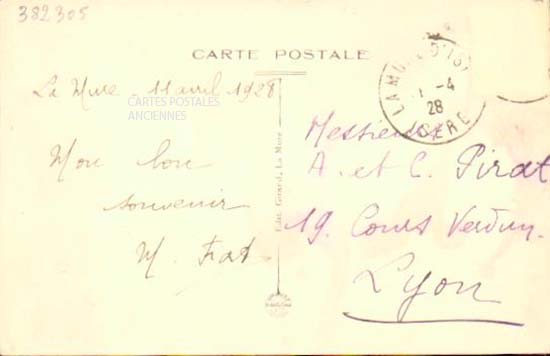 382305
CARTE POSTALE
La Mure - 11 avril 1928
CARTES POSTALES
ANCIENNES
Mon bon
souvenir
M.
Edit. Girard, La Mure
LA MURE D'IS
-4
28
ISERE
Messieurs
A. et C. Pirat
19. Cours Verdun.
Lyon